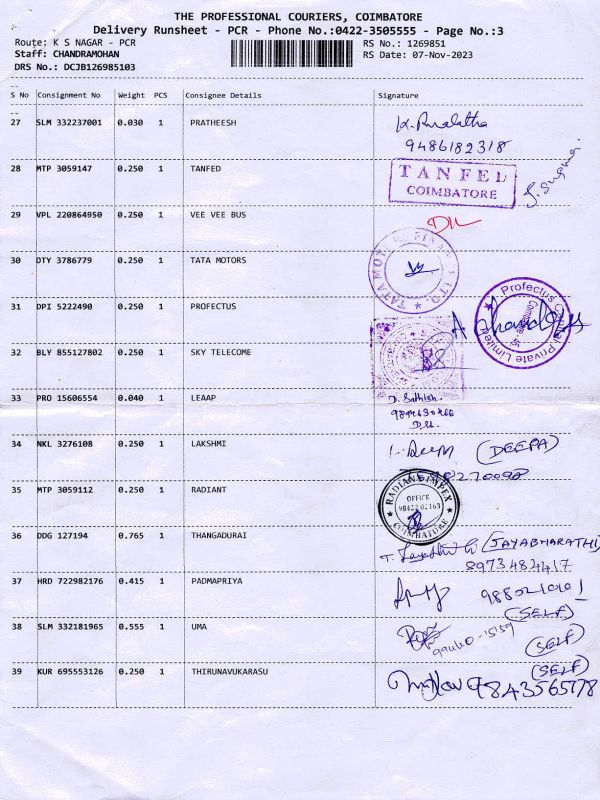 THE PROFESSIONAL COURIERS, COIMBATORE
Delivery Runsheet - PCR - Phone No.:0422-3505555 - Page No.:3
Route: K S NAGAR - PCR
RS No.: 1269851
Staff: CHANDRAMOHAN
RS Date: 07-Nov-2023
DRS No.: DCJB126985103
S No Consignment No Weight PCS Consignee Details Signature
27 SLM 332237001 0.030 1 PRATHEESH
9486182318
28 MTP 3059147 0.250 1 TANFED
TANFED
COIMBATORE
29 VPL 220864950 0.250 1 VEE VEE BUS
30 OTY 3786779 0.250 1 TATA MOTORS
31 DPI 5222490 0.250 1 PROFECTUS
Profectus Capital Private Limited
32 BLY 855127802 0.250 1 SKY TELECOME
33 PRO 15606554 0.040 1 LEAAP
D. Sathish.
34 NKL 3276108 0.250 1 LAKSHMI
(DEEPA)
35 MTP 3059112 0.250 1 RADIANT
RADIANT IMPEX
OFFICE
COIMBATORE
36 DDG 127194 0.765 1 THANGADURAI
(JAYABHARATHI)
8973484417
37 HRD 722982176 0.415 1 PADMAPRIYA
(SELF)
38 SLM 332181965 0.555 1 UMA
(SELF)
39 KUR 695553126 0.250 1 THIRUNAVUKARASU
(SELF)
9843565778